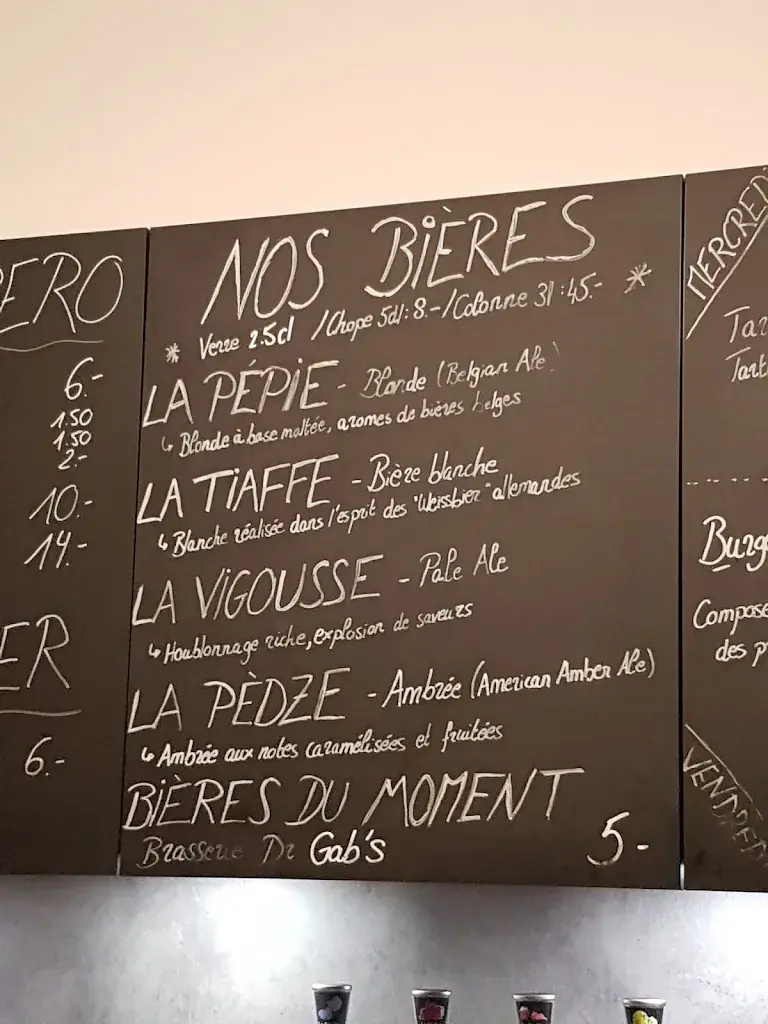 ERO
6.-
1.50
1.50
2.-
10.-
14.-
ER
6.-
NOS BIÈRES
* Verre 25cl /Chope 5dl: 8.-/Colonne 3l :45.- *
LA PÉPIE - Blonde (Belgian Ale)
↳ Blonde à base maltée, aromes de bières belges
LA TIAFFE - Bière blanche
↳ Blanche réalisée dans l'esprit des "Weissbier" allemandes
LA VIGOUSSE - Pale Ale
↳ Houblonnage riche, explosion de saveurs
LA PÈDZE - Ambrée (American Amber Ale)
↳ Ambrée aux notes caramélisées et fruitées
BIÈRES DU MOMENT
Brasserie Dr Gab's 5-
MERCRED
Tar
Tart
Burge
Compose
des p
VENDRED